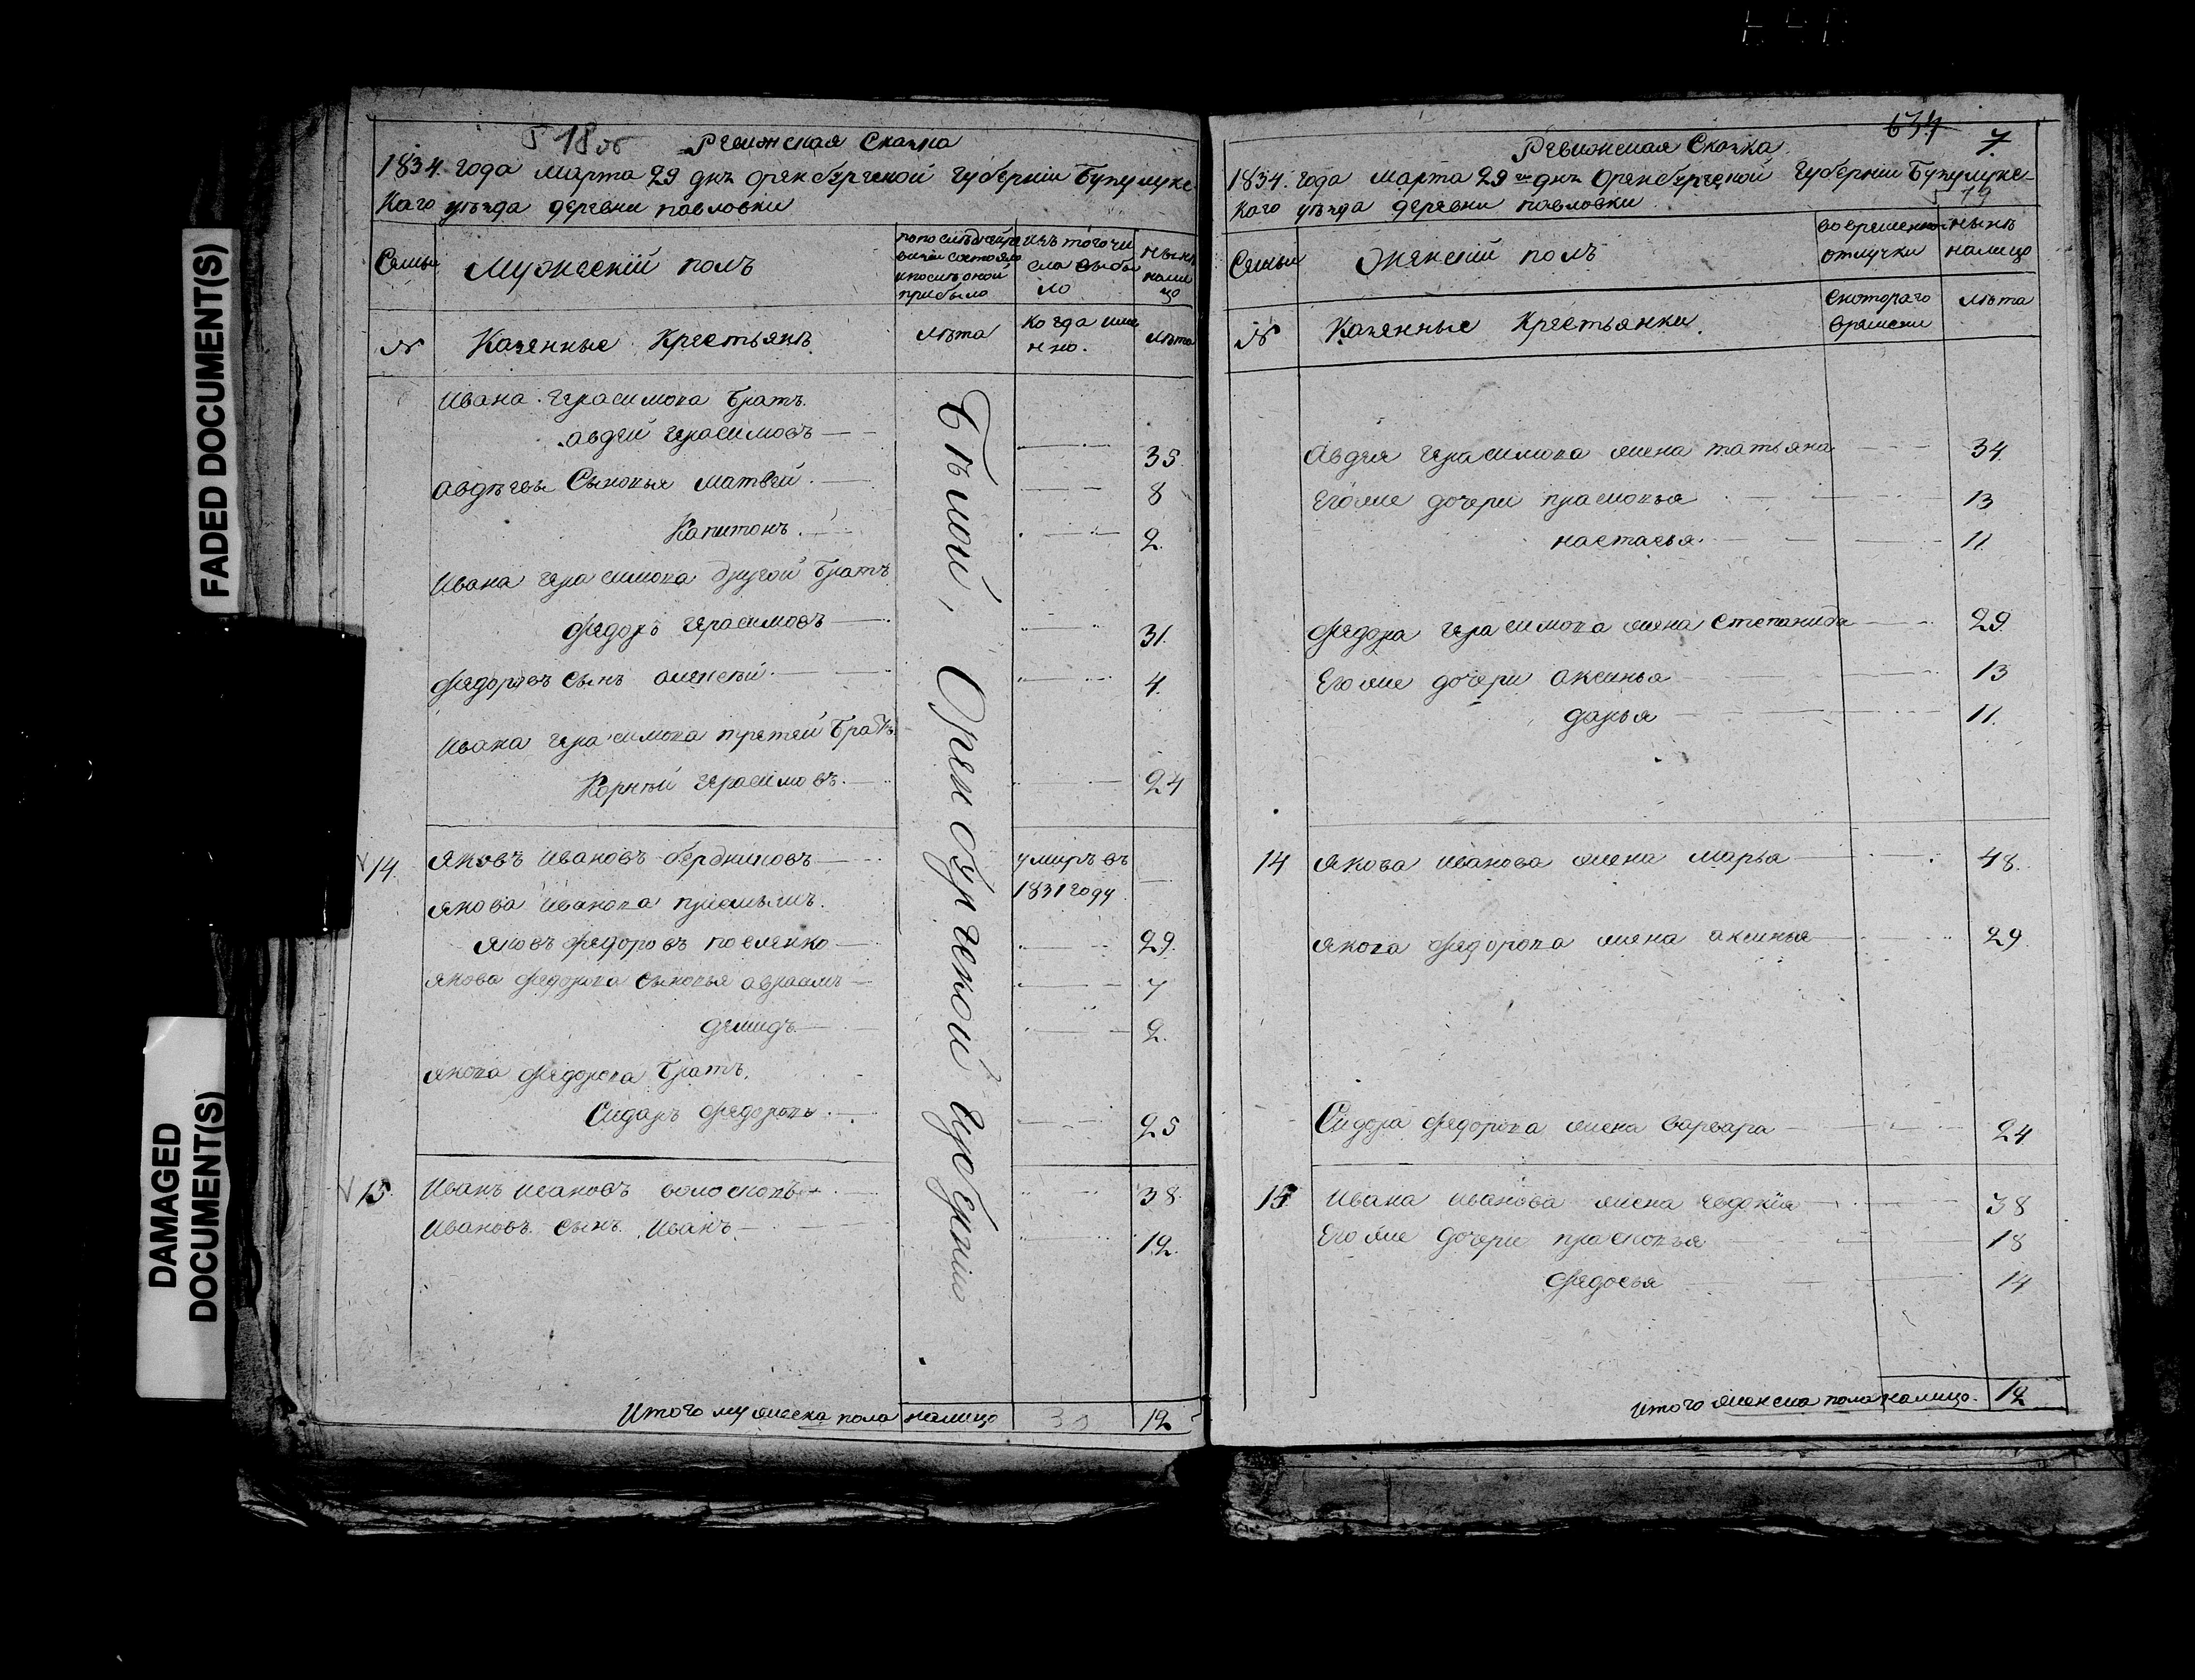 FADED DOCUMENT(S)
DAMAGED
DOCUMENT(S)
18 об
Ревижская Сказка
1834. года марта 29 днъ Оренбургской губерніи Бузулукс-
каго уѣзда деревни павловки
Семьи
Мужескій полъ
по последней ре
визіи состояло
и после оной
прибыло
изъ того чи
сла выбы
ло
нынѣ
нали
цо
№
Казенные Крестьянъ
лѣта
Когда име
нно.
лѣта
Ивана Герасимова братъ.
авдей Герасимовъ
35
авдѣевы Сыновья матвей
8
Капитонъ
2.
Ивана Герасимова другой братъ
Федоръ Герасимовъ
31.
Федоровъ Сынъ алексѣй
4.
Ивана Герасимова третей братъ
Корнѣй Герасимовъ
24
14.
Яковъ Ивановъ бердниковъ
умиръ въ
1831 году
Якова Иванова приемышъ.
Яковъ Федоровъ
29.
Якова Федорова Сыновья авраамъ
7
демидъ
2.
Якова Федорова братъ.
Сидаръ Федоровъ
25
15.
Иванъ Ивановъ
38.
Ивановъ Сынъ Иванъ
12.
Бѣлой, Оренбургской губерніи
Итого мужеска пола налицо
12
634
7.
Ревижская Сказка.
1834. года марта 29 го днъ Оренбургской губерніи Бузулукс-
19
каго уѣзда деревни павловки
Семьи
Женскій полъ
во временной
отлучки
нынѣ
налицо
№
Казенные Крестьянки.
Скотораго
времени
лѣта
Авдея Герасимова жена татьяна
34
Его же дочери прасковья
13
настасья
11.
Федора Герасимова жена Степанида
29
Его же дочери аксинья
13
дарья
11.
14
Якова Иванова жена марья
48.
Якова Федорова жена аксинья
29
Сидора Федорова жена варвара
24
15
Ивана Иванова жена евдокия
38
Его же дочери прасковья
18
Федосья
14
Итого женска пола налицо.
12